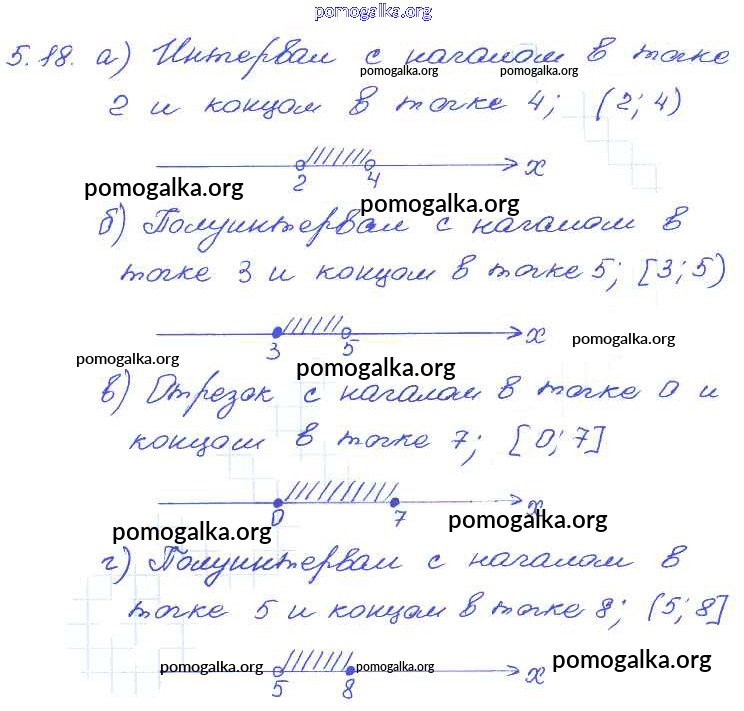 pomogalka.org
5.18. а) Интервал с началом в точке
pomogalka.org pomogalka.org
2 и концом в точке 4; (2; 4)
x
2 4
pomogalka.org pomogalka.org
б) Полуинтервал с началом в
точке 3 и концом в точке 5; [3; 5)
x
3 5
pomogalka.org pomogalka.org pomogalka.org
в) Отрезок с началом в точке 0 и
концом в точке 7; [0; 7]
x
0 7
pomogalka.org pomogalka.org
г) Полуинтервал с началом в
точке 5 и концом в точке 8; (5; 8]
pomogalka.org pomogalka.org x pomogalka.org
5 8